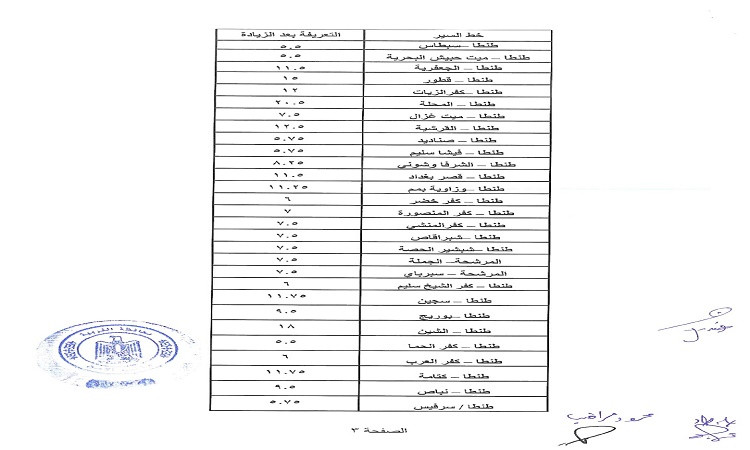 خط السير التعريفة بعد الزيادة
طنطا – سبطاس ٥.٥
طنطا – ميت حبيش البحرية ٥.٥
طنطا – الجعفرية ١١.٥
طنطا – قطور ١٥
طنطا – كفر الزيات ١٢
طنطا – المحلة ٢٠.٥
طنطا – ميت غزال ٧.٥
طنطا – القرشية ١٢.٥
طنطا – صناديد ٥.٧٥
طنطا – فيشا سليم ٥.٧٥
طنطا – الشرفا وشونى ٨.٢٥
طنطا – قصر بغداد ١١.٥
طنطا – وزاوية بمم ١١.٢٥
طنطا – كفر خضر ٦
طنطا – كفر المنصورة ٧
طنطا – كفر المنشي ٧.٥
طنطا – شبراقاص ٧.٥
طنطا – شبشير الحصة ٧.٥
المرشحة – الجملة ٧.٥
المرشحة – سبرباي ٧.٥
طنطا – كفر الشيخ سليم ٦
طنطا – سجين ١١.٧٥
طنطا – بوريج ٩.٥
طنطا – الشين ١٨
طنطا – كفر الحما ٥.٥
طنطا – كفر العرب ٦
طنطا – كتامة ١١.٧٥
طنطا – نياص ٩.٥
طنطا / سرفيس ٥.٧٥
محافظة الغربية
الصفحة ٣